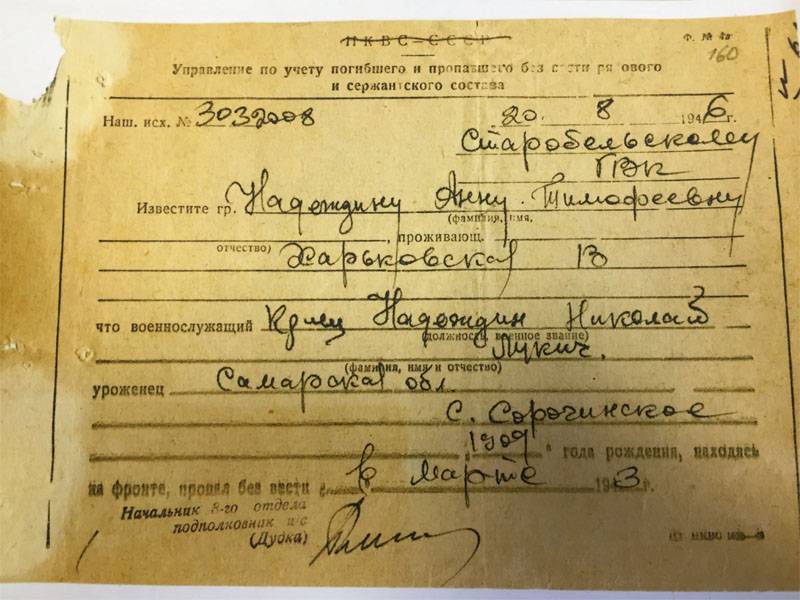 НКВС–СССР
Ф. № 4а
160
Управление по учету погибшего и пропавшего без вести рядового
и сержантского состава
Наш. исх. № 3032008 20. 8 1946 г.
Старобельскому
ГВК
Известите гр. Надеждину Анну Тимофеевну
(фамилия, имя,
, проживающ.
отчество) Харьковская 13
что военнослужащий Кр-ец Надеждин Николай
(должность, военное звание)
Лукич.
(фамилия, имя и отчество)
уроженец Самарская обл.
С. Сорочинское
1909 года рождения, находясь
на фронте, пропал без вести в марте 1943 г.
Начальник 8-го отдела
подполковник и/с
(Дудка)